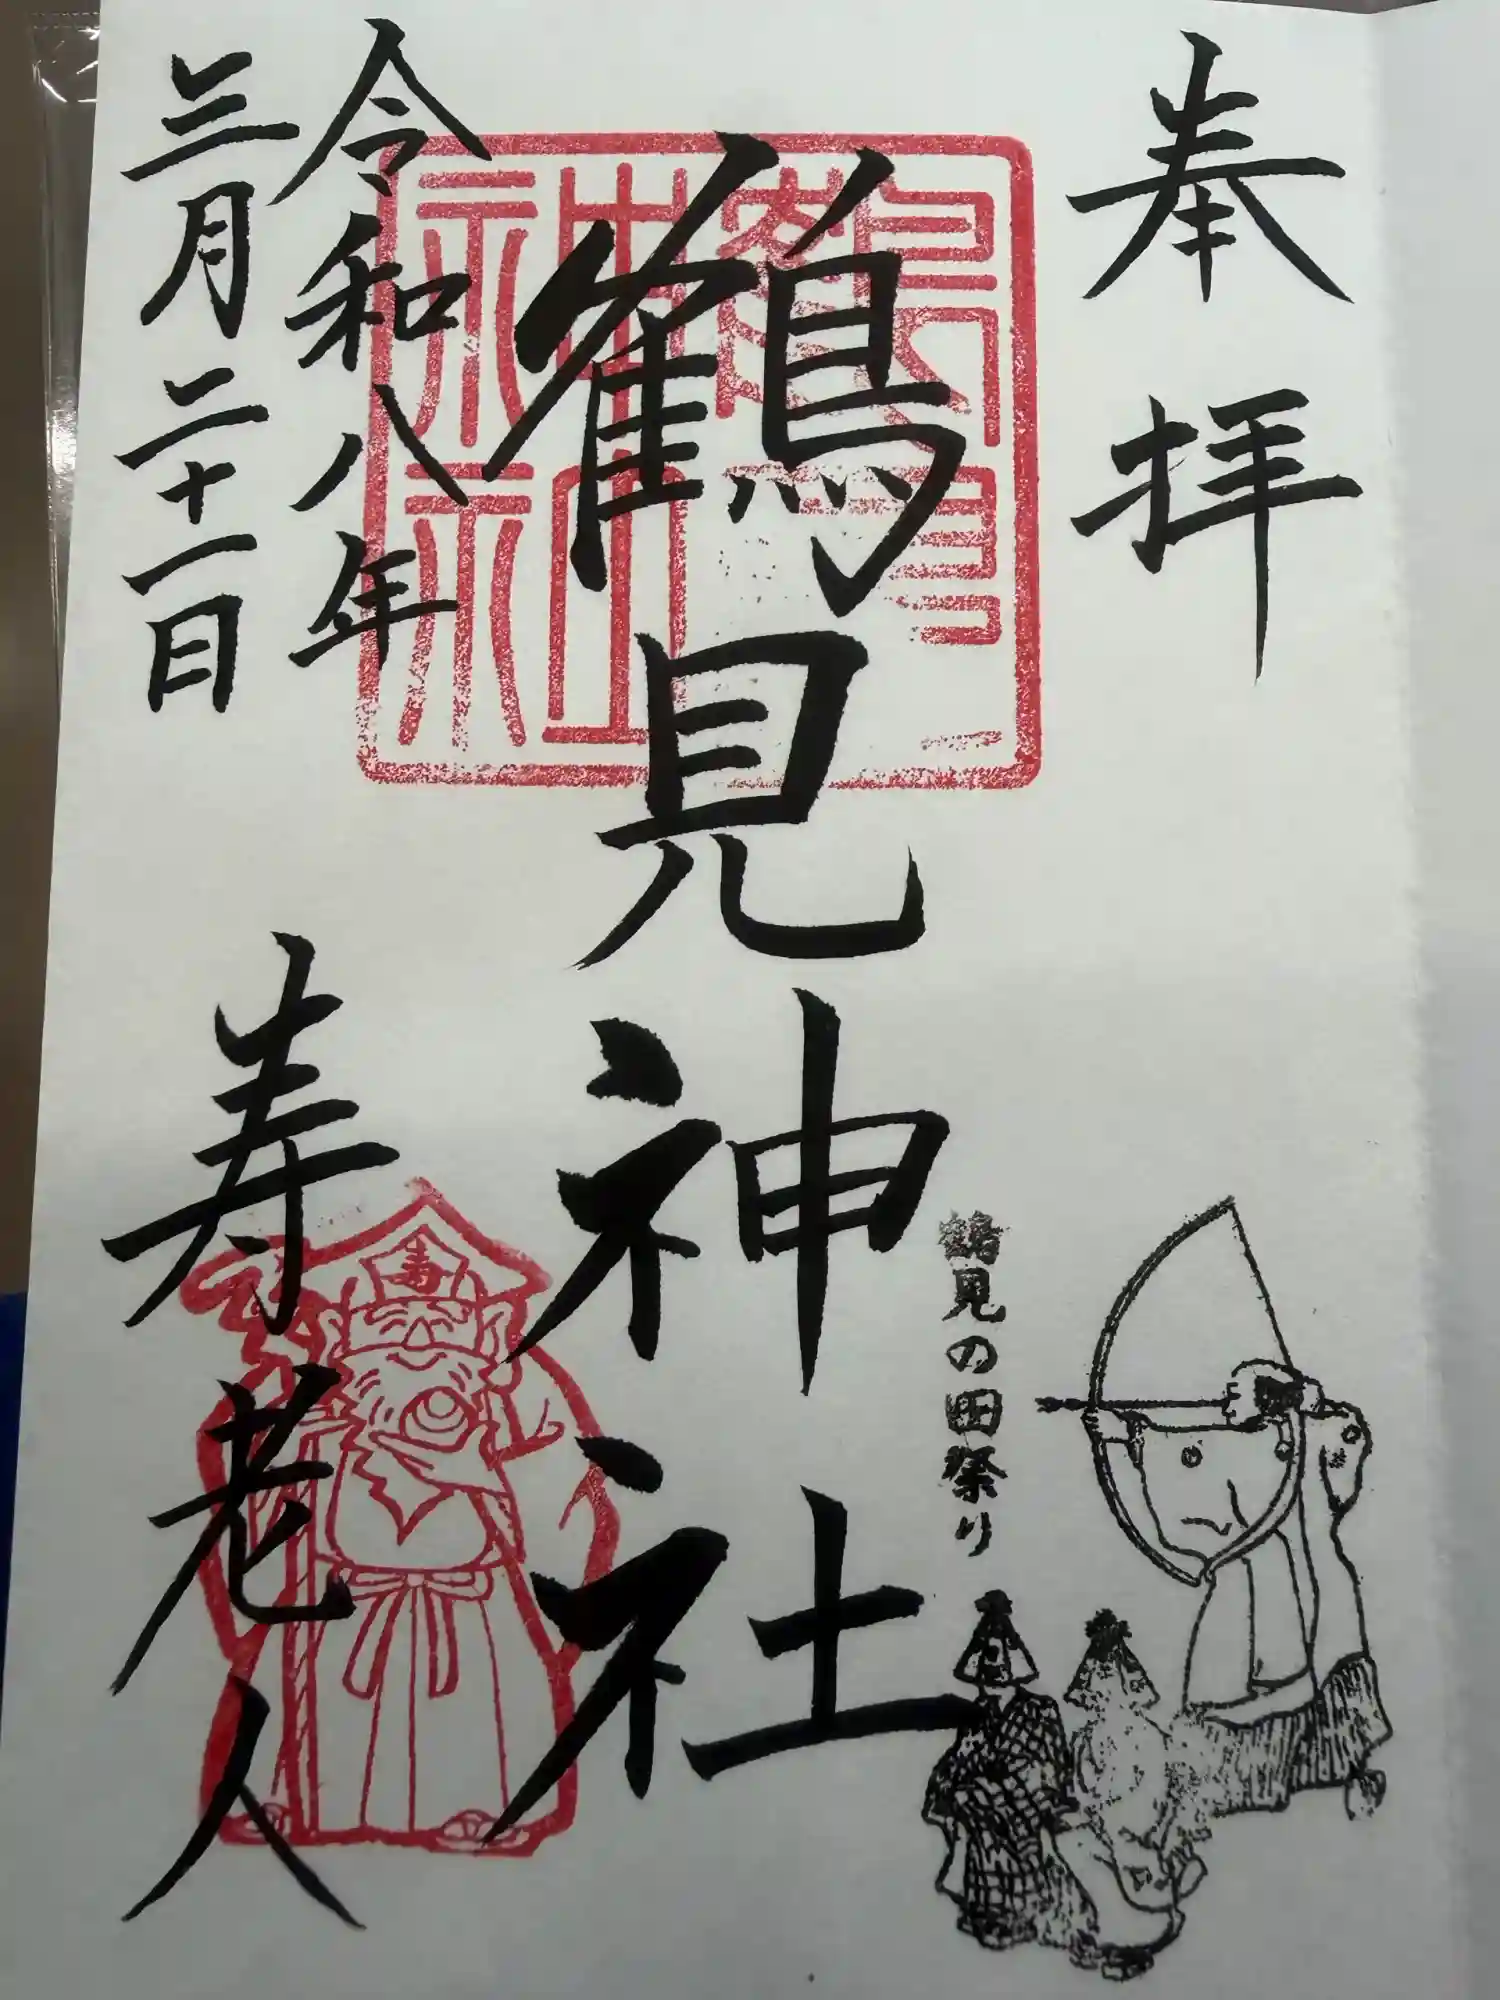 奉拝
鶴見神社
鶴見神社
鶴見の田祭り
令和八年
三月二十一日
寿老人
寿